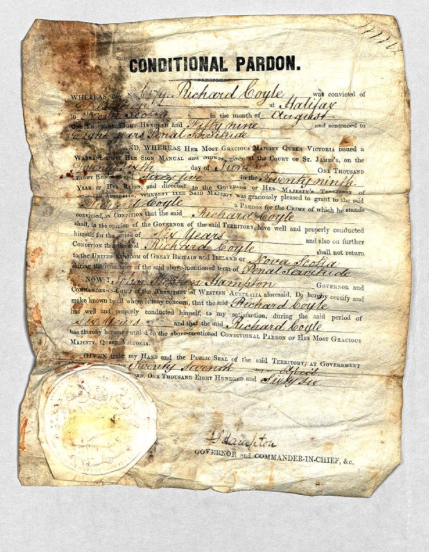 CONDITIONAL PARDON.
WHEREAS Richard Coyle was convicted of
at Halifax
in the month of August
One Thousand Eight Hundred and Fifty nine and sentenced to
Eight Years Penal Servitude
AND, WHEREAS HER MOST GRACIOUS MAJESTY QUEEN VICTORIA issued a
WARRANT UNDER HER SIGN MANUAL and at the COURT OF ST. JAMES'S, on the
day of ONE THOUSAND
EIGHT HUNDRED in the Twenty ninth
YEAR OF HER REIGN, and directed to the GOVERNOR OF HER MAJESTY'S TERRITORY OF
HER Said MAJESTY was graciously pleased to grant to the said
Coyle a PARDON for the CRIME of which he stands
convicted, on CONDITION that the said Richard Coyle
shall, in the opinion of the GOVERNOR of the said TERRITORY, have well and properly conducted
himself for the Six Years and also on further
CONDITION that the Richard Coyle shall not return
to the UNITED KINGDOM OF GREAT BRITAIN AND IRELAND or Nova Scotia
during the of the above-mentioned term of Penal Servitude
NOW I, Hampton GOVERNOR and
COMMANDER-IN-CHIEF OF THE TERRITORY OF WESTERN AUSTRALIA aforesaid. Do hereby certify and
make known to all whom it may concern, that the said Richard Coyle
has well and properly conducted himself, to my satisfaction, during the said period of
Six Years and that the said Richard Coyle
has thereby become entitled to the above-mentioned CONDITIONAL PARDON OF HER MOST GRACIOUS
MAJESTY, QUEEN VICTORIA.
GIVEN under my HAND and the PUBLIC SEAL of the said TERRITORY, AT GOVERNMENT
Twenty Seventh April
ONE THOUSAND EIGHT HUNDRED and Sixty Six
J Hampton
GOVERNOR and COMMANDER-IN-CHIEF, &c.